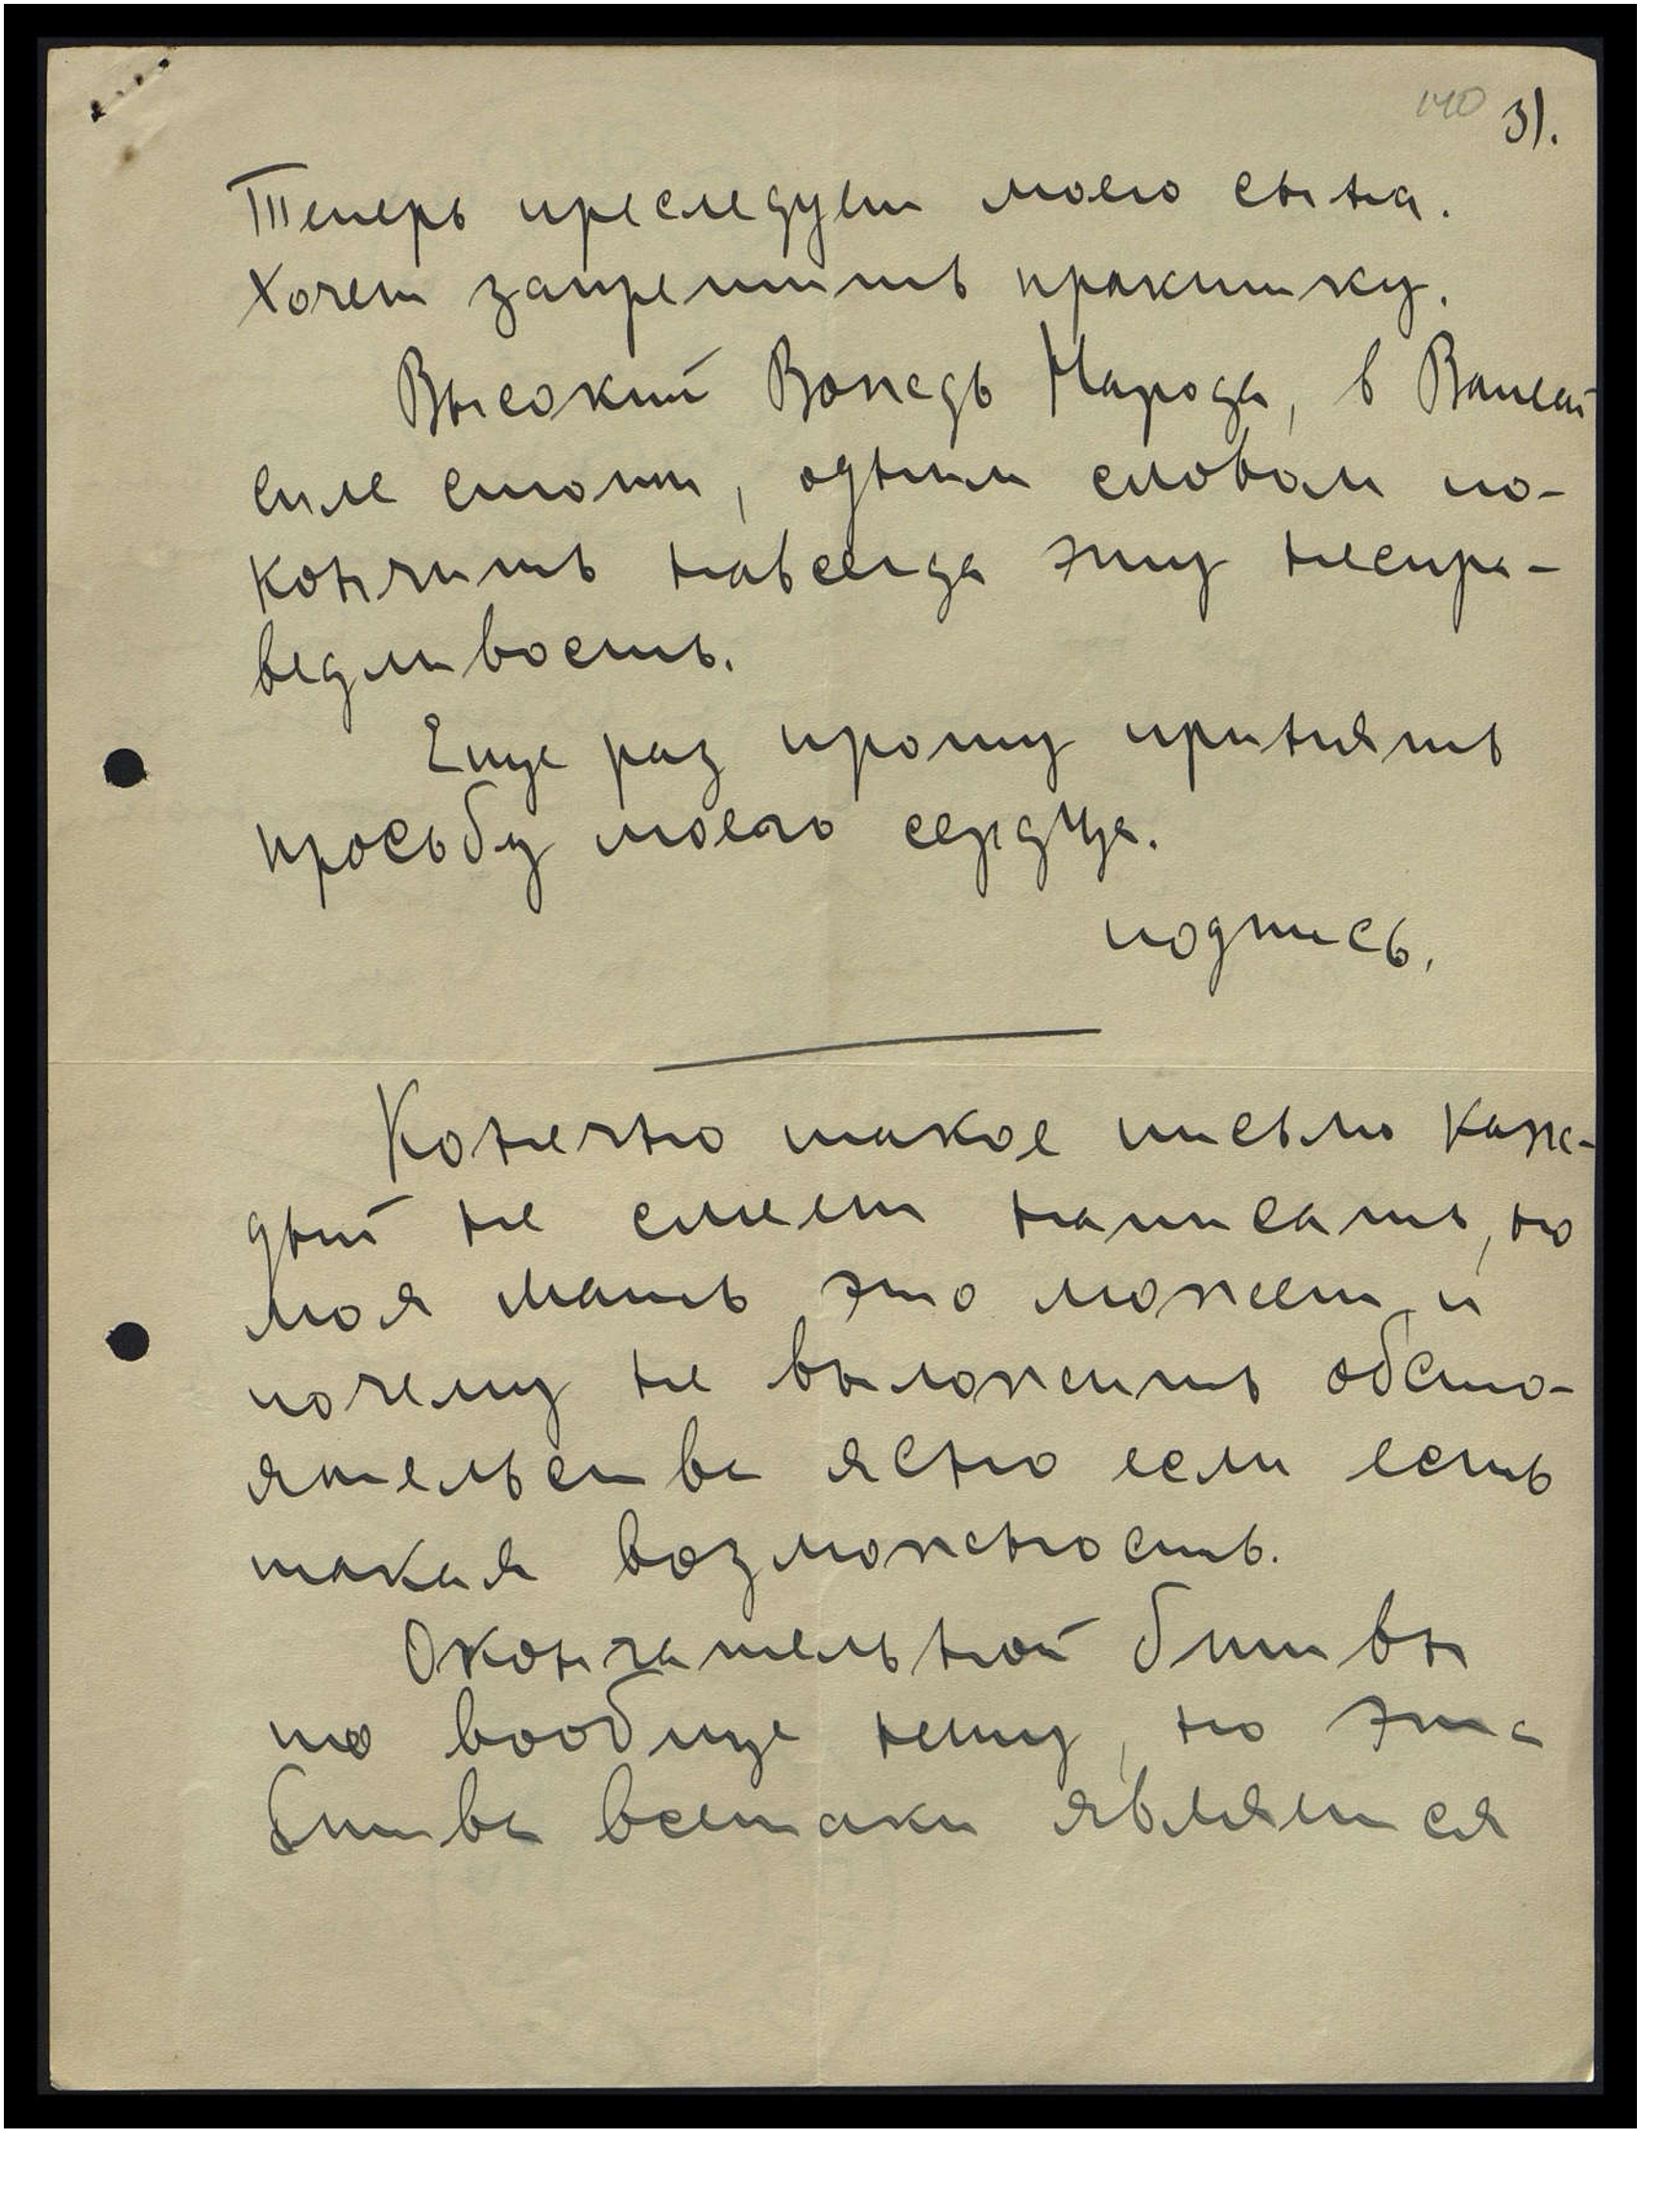 140 3).
Теперь преследует моего сына.
Хочет запретить практику.
Высокий Вождь Народа, в Вашей
силе стоит, одним словом по-
кончить навсегда эту неспра-
ведливость.
Еще раз прошу принять
просьбу моего сердца.
подпись.
Конечно такое письмо каж-
дый не смеет написать, но
моя мать это может и
почему не выложить обсто-
ятельства ясно если есть
такая возможность.
Окончательной битвы
то вообще нету, но эта
битва всетаки является